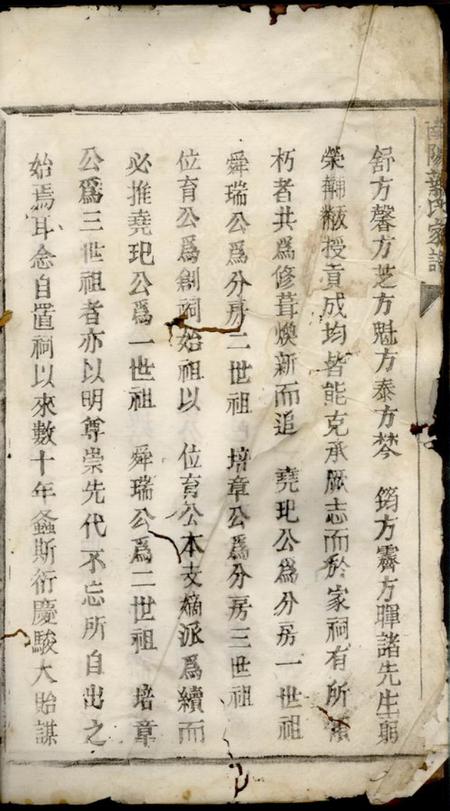 南陽葉氏家譜
舒方馨方芝方魁方泰方棽 筠方霽方暉諸先生躬
榮黼黻授貢成均皆能克承厥志而於家祠有所
朽者共爲修葺煥新而追 堯玘公爲分房一世祖
舜瑞公爲分房二世祖 培章公爲分房三世祖
位育公爲創祠始祖以 位育公本支嫡派爲續而
必推堯玘公爲一世祖 舜瑞公爲二世祖 培章
公爲三世祖者亦以明尊崇先代不忘所自出之
始焉耳念自置祠以來數十年螽斯衍慶駿大貽謀